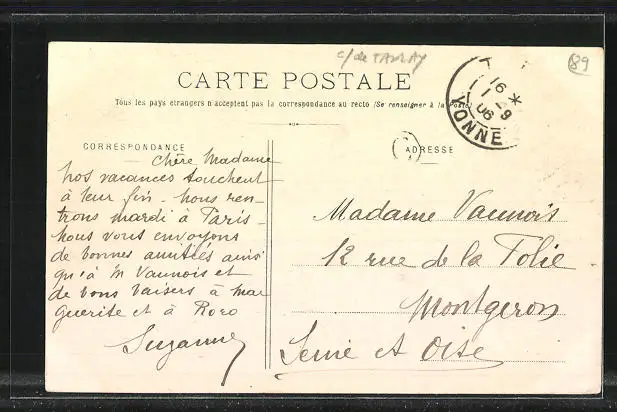 c/ de TANLAY
89
CARTE POSTALE
Tous les pays étrangers n'acceptent pas la correspondance au recto (Se renseigner à la Poste)
CORRESPONDANCE
ADRESSE
16
9
06
YONNE
Chère Madame
Nos vacances touchent
à leur fin - nous ren-
trons mardi à Paris -
Nous vous envoyons
de bonnes amitiés ainsi
qu'à M Vaunois et
de bons baisers à Mar
guerite et à Roro
Suzanne
Madame Vaunois
12 rue de la Folie
Montgeron
Seine et Oise